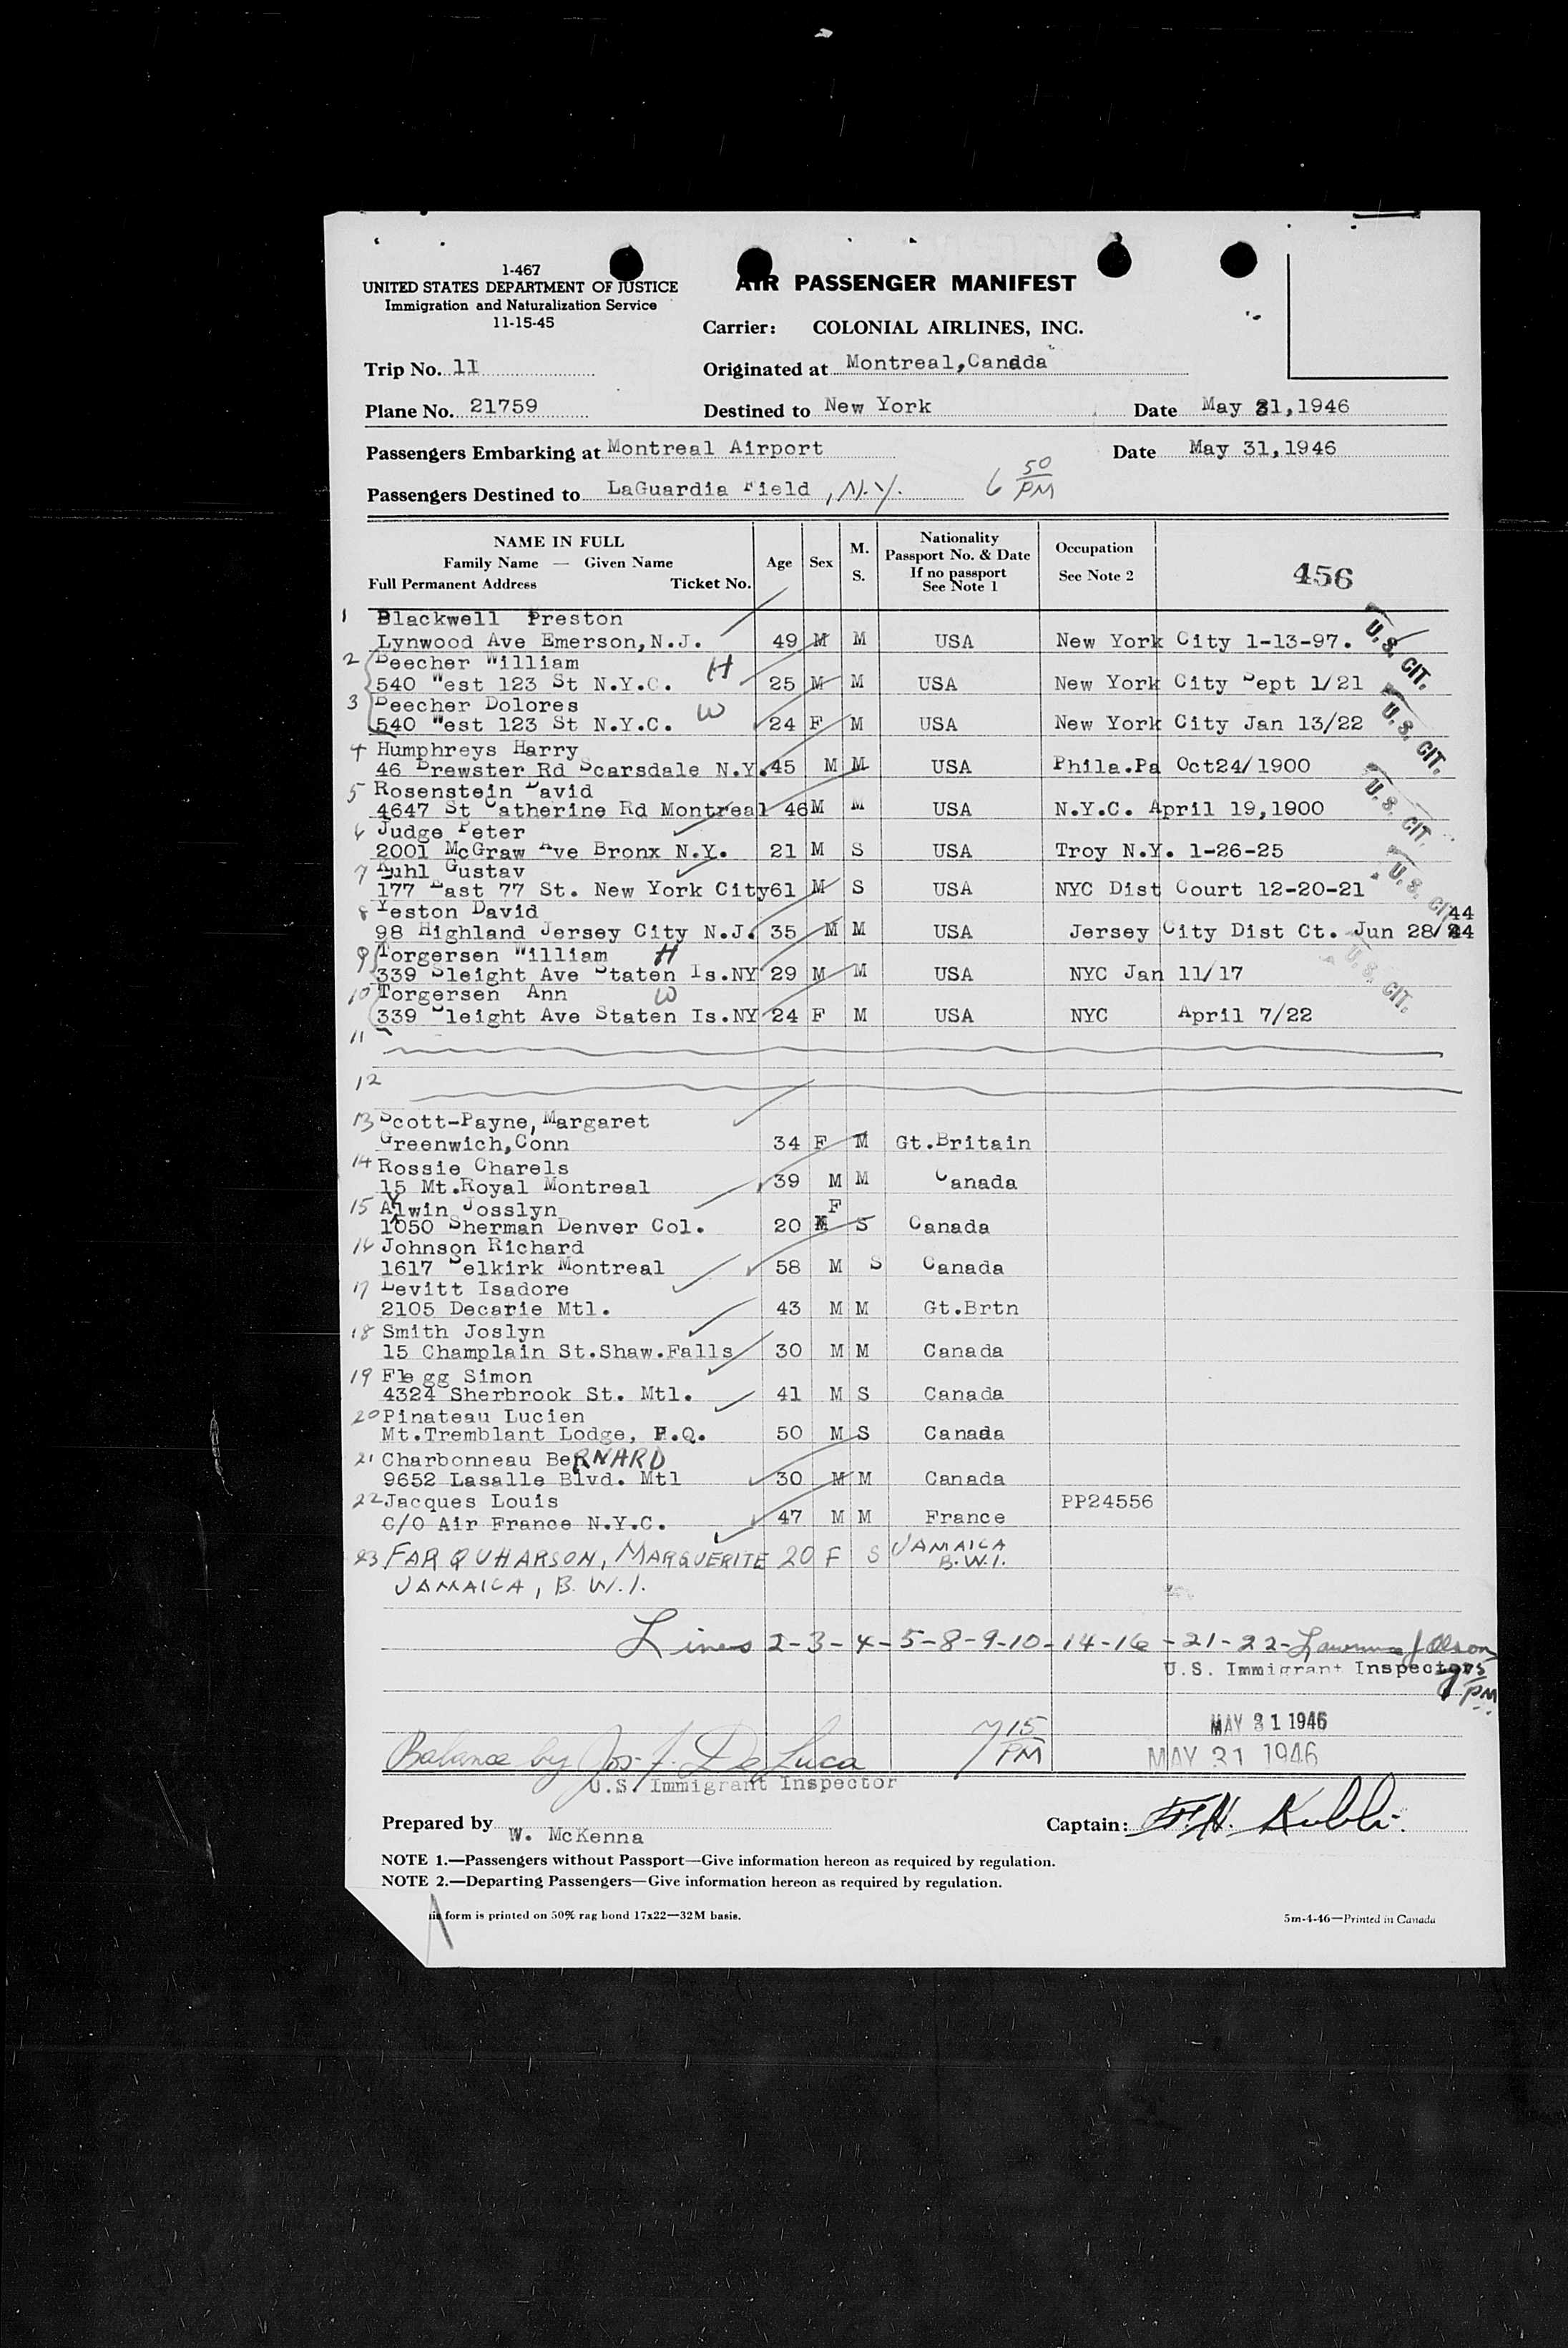 1-467
UNITED STATES DEPARTMENT OF JUSTICE
Immigration and Naturalization Service
11-15-45
AIR PASSENGER MANIFEST
Carrier: COLONIAL AIRLINES, INC.
Trip No. 11
Originated at Montreal,Canada
Plane No. 21759
Destined to New York
Date May 31,1946
Passengers Embarking at Montreal Airport
Date May 31,1946
Passengers Destined to LaGuardia Field , N.Y. 6 50 PM
NAME IN FULL
Family Name — Given Name
Full Permanent Address Ticket No.
Age
Sex
M. S.
Nationality
Passport No. & Date
If no passport
See Note 1
Occupation
See Note 2
456
1 Blackwell Preston
Lynwood Ave Emerson,N.J. 49 M M USA New York City 1-13-97. U.S. CIT.
2 Beecher William H
540 West 123 St N.Y.C. 25 M M USA New York City Sept 1/21
3 Beecher Dolores W
540 West 123 St N.Y.C. 24 F M USA New York City Jan 13/22 U.S. CIT.
4 Humphreys Harry
46 Brewster Rd Scarsdale N.Y. 45 M M USA Phila.Pa Oct24/1900
5 Rosenstein David
4647 St Catherine Rd Montreal 46 M M USA N.Y.C. April 19,1900 U.S. CIT.
6 Judge Peter
2001 McGraw Ave Bronx N.Y. 21 M S USA Troy N.Y. 1-26-25
7 Kuhl Gustav
177 East 77 St. New York City 61 M S USA NYC Dist Court 12-20-21 U.S. CIT.
8 Yeston David 44
98 Highland Jersey City N.J. 35 M M USA Jersey City Dist Ct. Jun 28/44
9 Torgersen William H
339 Sleight Ave Staten Is.NY 29 M M USA NYC Jan 11/17 U.S. CIT.
10 Torgersen Ann W
339 Sleight Ave Staten Is.NY 24 F M USA NYC April 7/22
11
12
13 Scott-Payne,Margaret
Greenwich,Conn 34 F M Gt.Britain
14 Rossie Charels
15 Mt.Royal Montreal 39 M M Canada
15 Alwin Josslyn F
1050 Sherman Denver Col. 20 S Canada
16 Johnson Richard
1617 Selkirk Montreal 58 M S Canada
17 Levitt Isadore
2105 Decarie Mtl. 43 M M Gt.Brtn
18 Smith Joslyn
15 Champlain St.Shaw.Falls 30 M M Canada
19 Flegg Simon
4324 Sherbrook St. Mtl. 41 M S Canada
20 Pinateau Lucien
Mt.Tremblant Lodge, P.Q. 50 M S Canada
21 Charbonneau BeRNARD
9652 Lasalle Blvd. Mtl 30 M M Canada
22 Jacques Louis PP24556
C/O Air France N.Y.C. 47 M M France
23 FARQUHARSON, MARGUERITE 20 F S JAMAICA B.W.I.
JAMAICA, B.W.I.
Lines 2-3-4-5-8-9-10-14-16-21-22- Lawrence J Olson
U.S. Immigrant Inspector
PM
MAY 31 1946
Balance by Jos. F. De Luca 7 15 PM MAY 31 1946
U.S. Immigrant Inspector
Prepared by W. McKenna
Captain:
NOTE 1.—Passengers without Passport—Give information hereon as required by regulation.
NOTE 2.—Departing Passengers—Give information hereon as required by regulation.
form is printed on 50% rag bond 17x22—32M basis.
5m-4-46—Printed in Canada